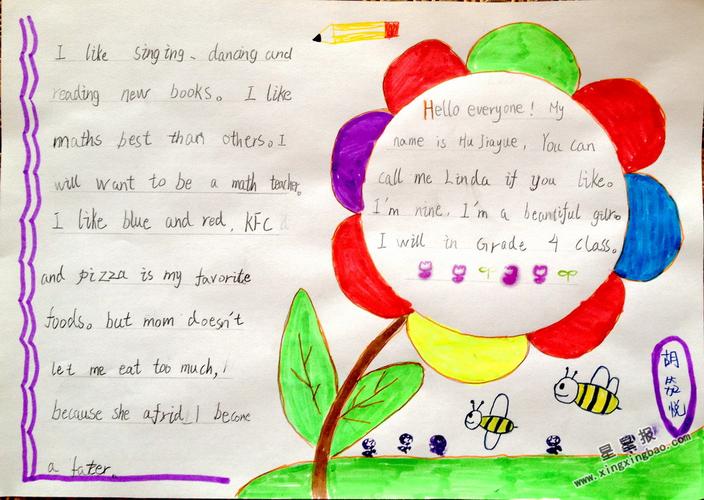 Hello everyone! My
name is Hu Jiayue, You can
call me Linda if you like。
I'm nine. I'm a beautiful gilr。
I will in Grade 4 class。
I like singing、dancing and
reading new books。I like
maths best than others。I
will want to be a math teacher。
I like blue and red, KFC
and pizza is my favorite
foods。but mom doesn't
let me eat too much,
because she afrid I become
a fater.
胡笳悦
星星报
www.xingxingbao.com